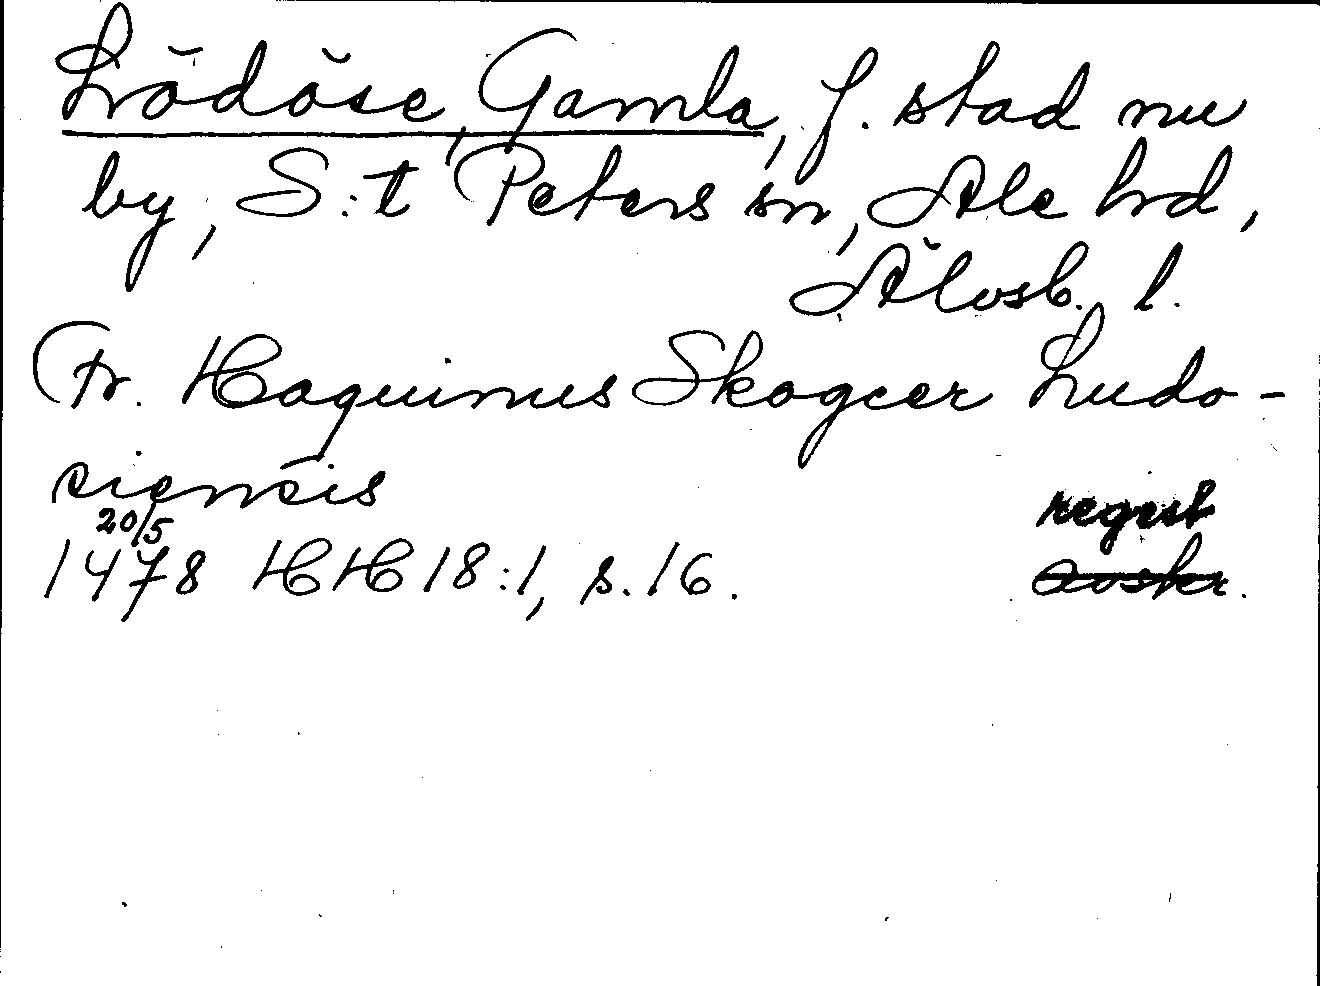 Lödöse, Gamla, f. stad nu
by, S:t Peters sn, Ale hd,
Älvsb. l.
Fr. Haquinus Skogcer Ludo-
ciensis
regest
20/5
1478 HH 18:1, s. 16. avskr.